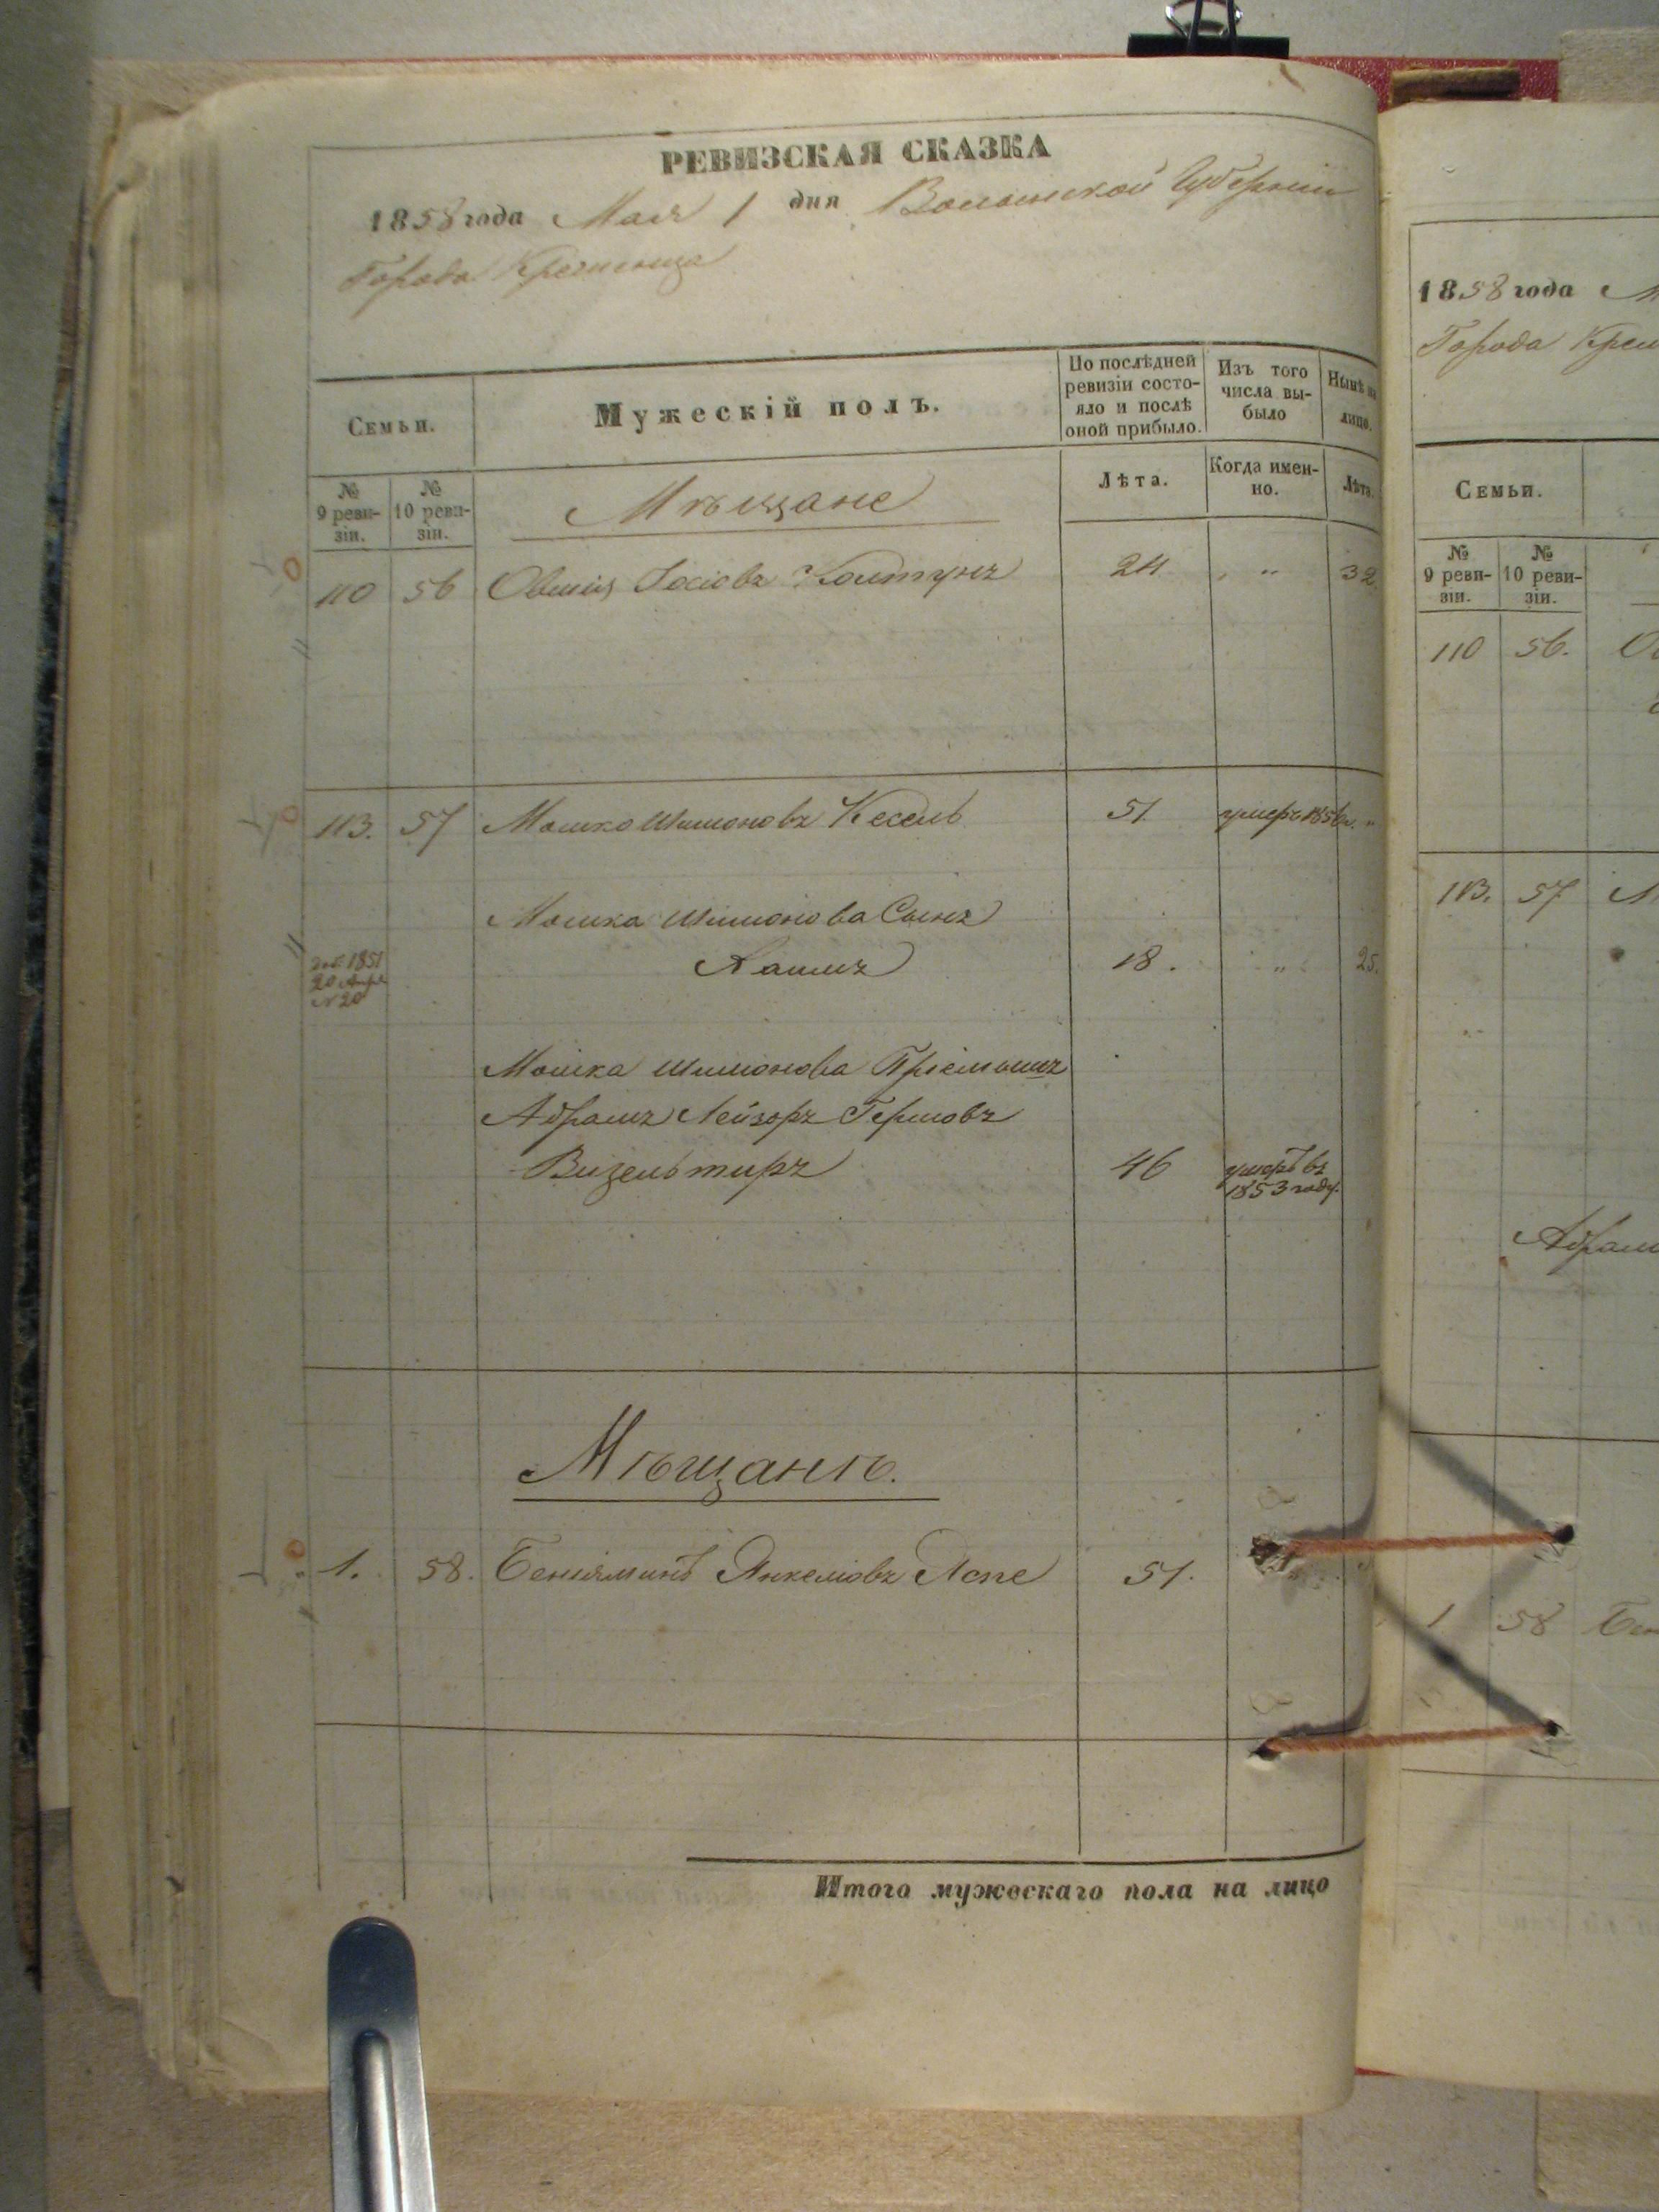 РЕВИЗСКАЯ СКАЗКА
1858 года Мая 1 дня Волынской Губернии
Города Кременца
Семьи.
Мужескій полъ.
По послѣдней ревизіи состояло и послѣ оной прибыло.
Изъ того числа выбыло
Нынѣ на лицо.
№ 9 ревизіи.
№ 10 ревизіи.
Мѣщане
Лѣта.
Когда именно.
Лѣта.
110 56 Овшія Іосіовъ Колтунъ 24 „ 32
113. 57 Мошко Шимоновъ Кесель 51 умеръ 1856 г. „
Мошка Шимонова Сынъ
18. „ 25.
1851
20 Апр.
№ 20
Мошка Шимонова Пріемышъ
Абрамъ Лейзоръ Гершовъ
Визельтиръ 46 умеръ въ
1853 году.
Мѣщанѣ.
1. 58. Беніяминъ Янкелiовъ Яспе 51.
Итого мужескаго пола на лицо
1858 года М
Города Крем
Семьи.
№ 9 ревизіи.
№ 10 ревизіи.
110 56.
113. 57 М
Абрам
1 58 Бен